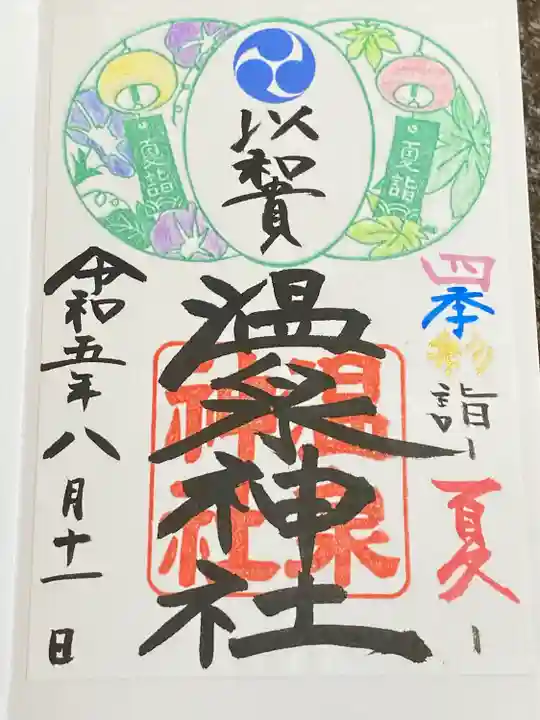 四季彩詣-夏-
以和貴
夏詣
夏詣
温泉神社
温泉
神社
令和五年八月十一日